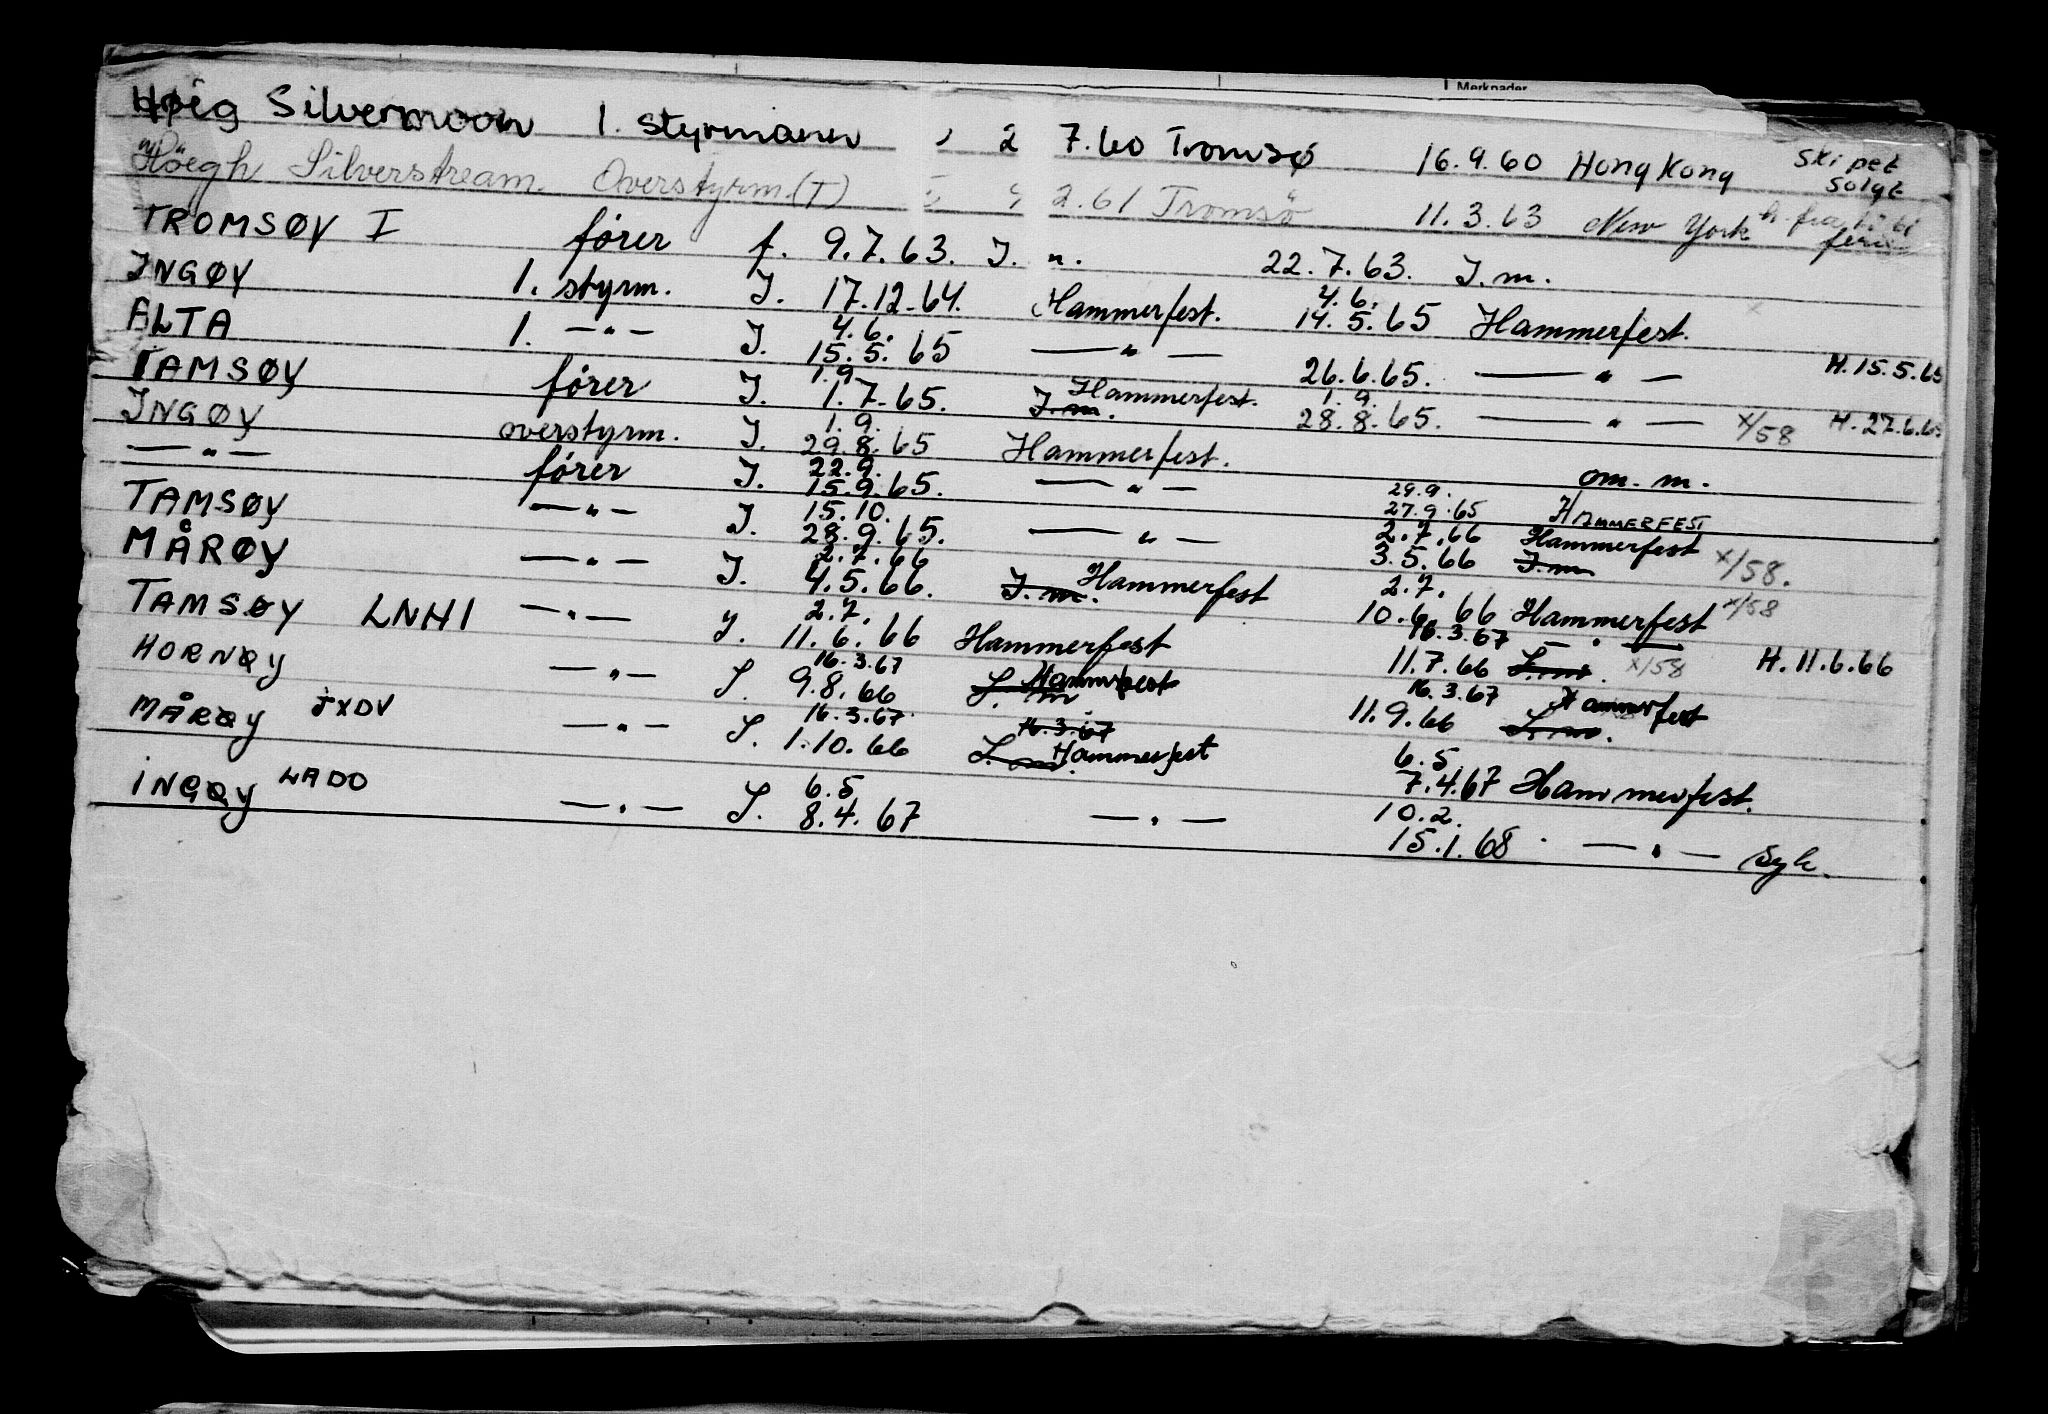 Merknader
Høeg Silvermoon 1. styrmann 2 7.60 Tromsø 16.9.60 Hong Kong Skipet solgt
Höegh Silverstream Overstyrm.(T) 2.61 Tromsö 11.3.63 New York h. fra ferie
TROMSØY I fører f. 9.7.63. I. n. 22.7.63. I.m.
INGØY 1. styrm. I. 17.12.64. Hammerfest. 4.6. 14.5.65 Hammerfest.
ALTA 1. —"— I. 4.6. 15.5.65 —"— 26.6.65. —"— H. 15.5.65
TAMSØY fører I. 1.9. 1.7.65. I.m. Hammerfest. 1.9. 28.8.65. —"— x/58 H. 27.6.65
INGØY overstyrm. I. 1.9. 29.8.65 Hammerfest. om. m.
—"— fører I. 22.9. 15.9.65. —"— 29.9. 27.9.65 HAMMERFEST
TAMSØY —"— I. 15.10. 28.9.65. —"— 2.7.66 3.5.66 Hammerfest I.m x/58.
MÅRØY —"— I. 2.7.66 4.5.66. I.m. Hammerfest 2.7. 10.6.66 Hammerfest x/58
TAMSØY LNHI —"— I. 2.7. 11.6.66 Hammerfest 16.3.67 —"— 11.7.66 I.m. x/58 H. 11.6.66
HORNØY —"— I. 16.3.67 9.8.66 I.m Hammerfest 16.3.67 11.9.66 Hammerfest I.m.
MÅRØY JXDV —"— I. 16.3.67 1.10.66 16.3.67 I.m. Hammerfest 6.5. 7.4.67 Hammerfest.
INGØY LADO —"— I. 6.5 8.4.67 —"— 10.2. 15.1.68 —"— Syk.